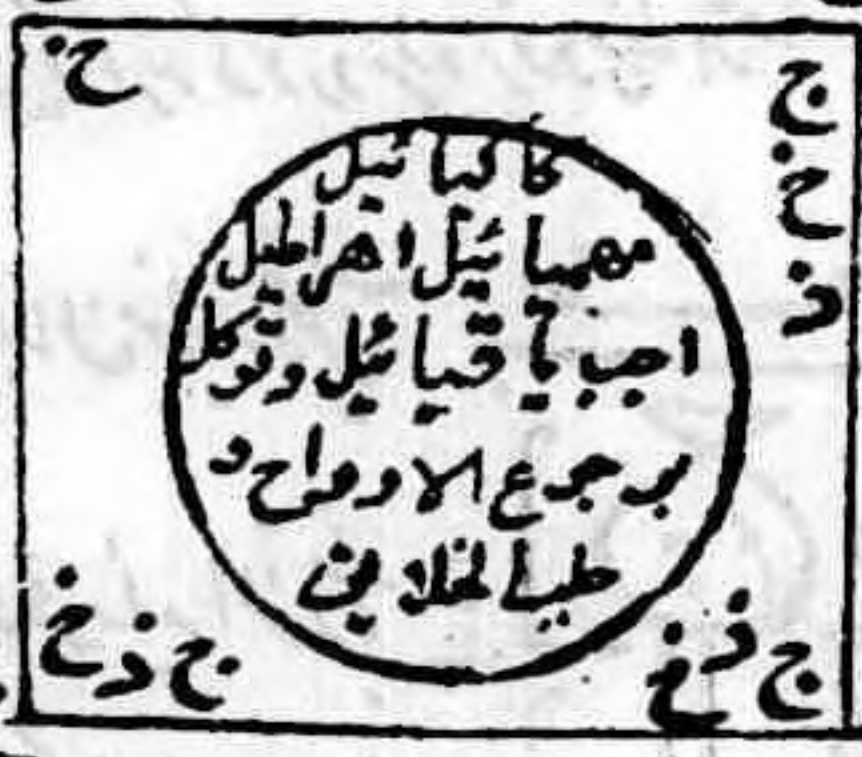 خ
ج
خ
ذ
كافيائيل
مهميائيل اهراطيل
اجب يا قيائيل وتوكل
بر جوع الارواح و
الخلايق
خ ذ ج
ج ذ خ